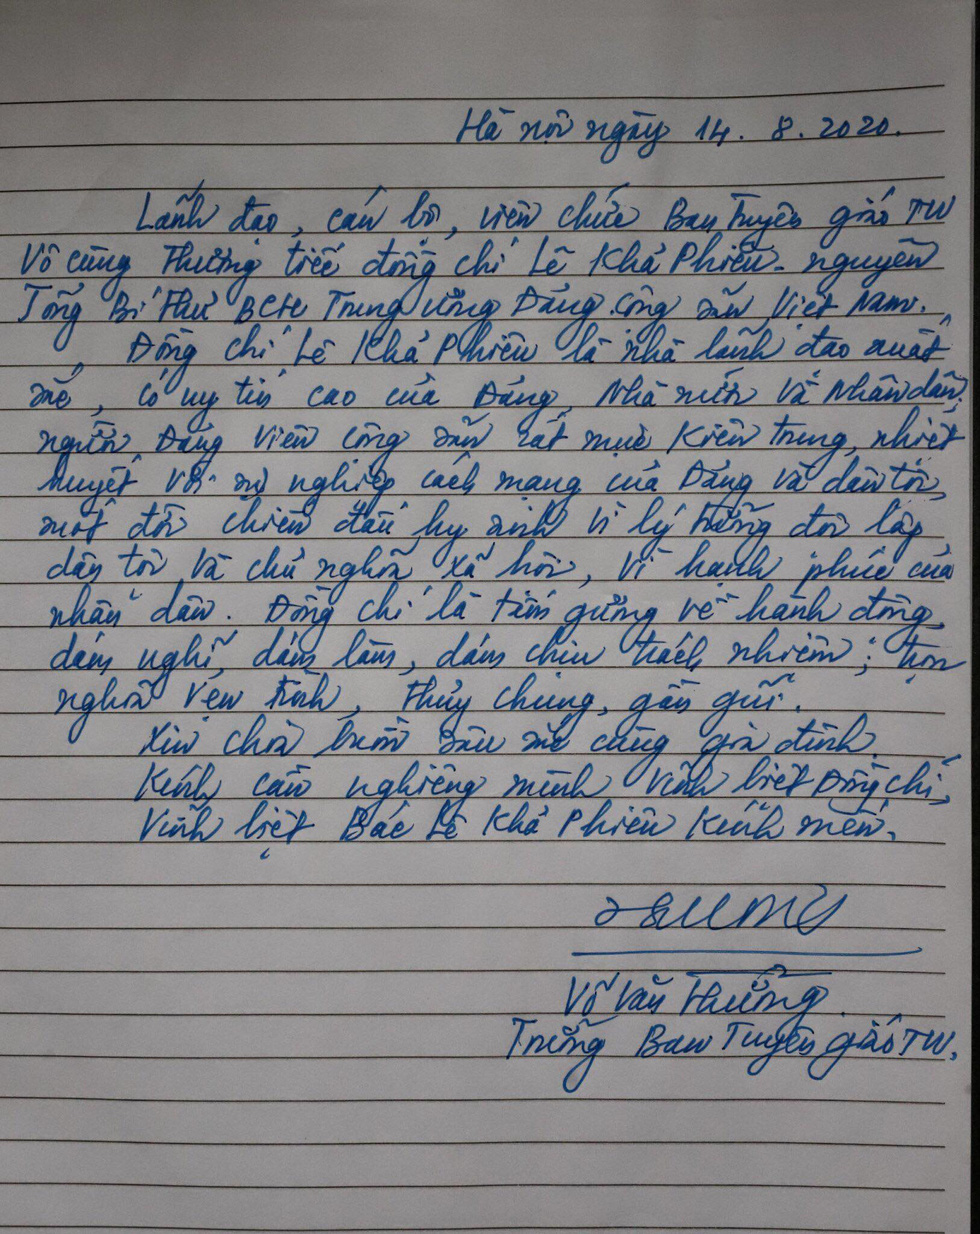 Hà nội ngày 14. 8. 2020.
Lãnh đạo, cán bộ, viên chức Ban Tuyên giáo TW
Vô cùng Thương tiếc đồng chí Lê Khả Phiêu - nguyên
Tổng Bí Thư BCH Trung ương Đảng cộng sản Việt Nam.
Đồng chí Lê Khả Phiêu là nhà lãnh đạo xuất
sắc, có uy tín cao của Đảng, Nhà nước và Nhân dân,
người Đảng viên cộng sản rất mực Kiên trung, nhiệt
huyết với sự nghiệp cách mạng của Đảng và dân tộc,
một đời chiến đấu hy sinh vì lý tưởng độc lập
dân tộc và chủ nghĩa xã hội, vì hạnh phúc của
nhân dân. Đồng chí là tấm gương về hành động,
dám nghĩ, dám làm, dám chịu trách nhiệm; trọn
nghĩa vẹn tình, thủy chung, gần gũi.
Xin chia buồn sâu sắc cùng gia đình.
Kính cẩn nghiêng mình vĩnh biệt Đồng chí,
Vĩnh biệt Bác Lê Khả Phiêu Kính mến.
Võ Văn Thưởng
Trưởng Ban Tuyên giáo TW.